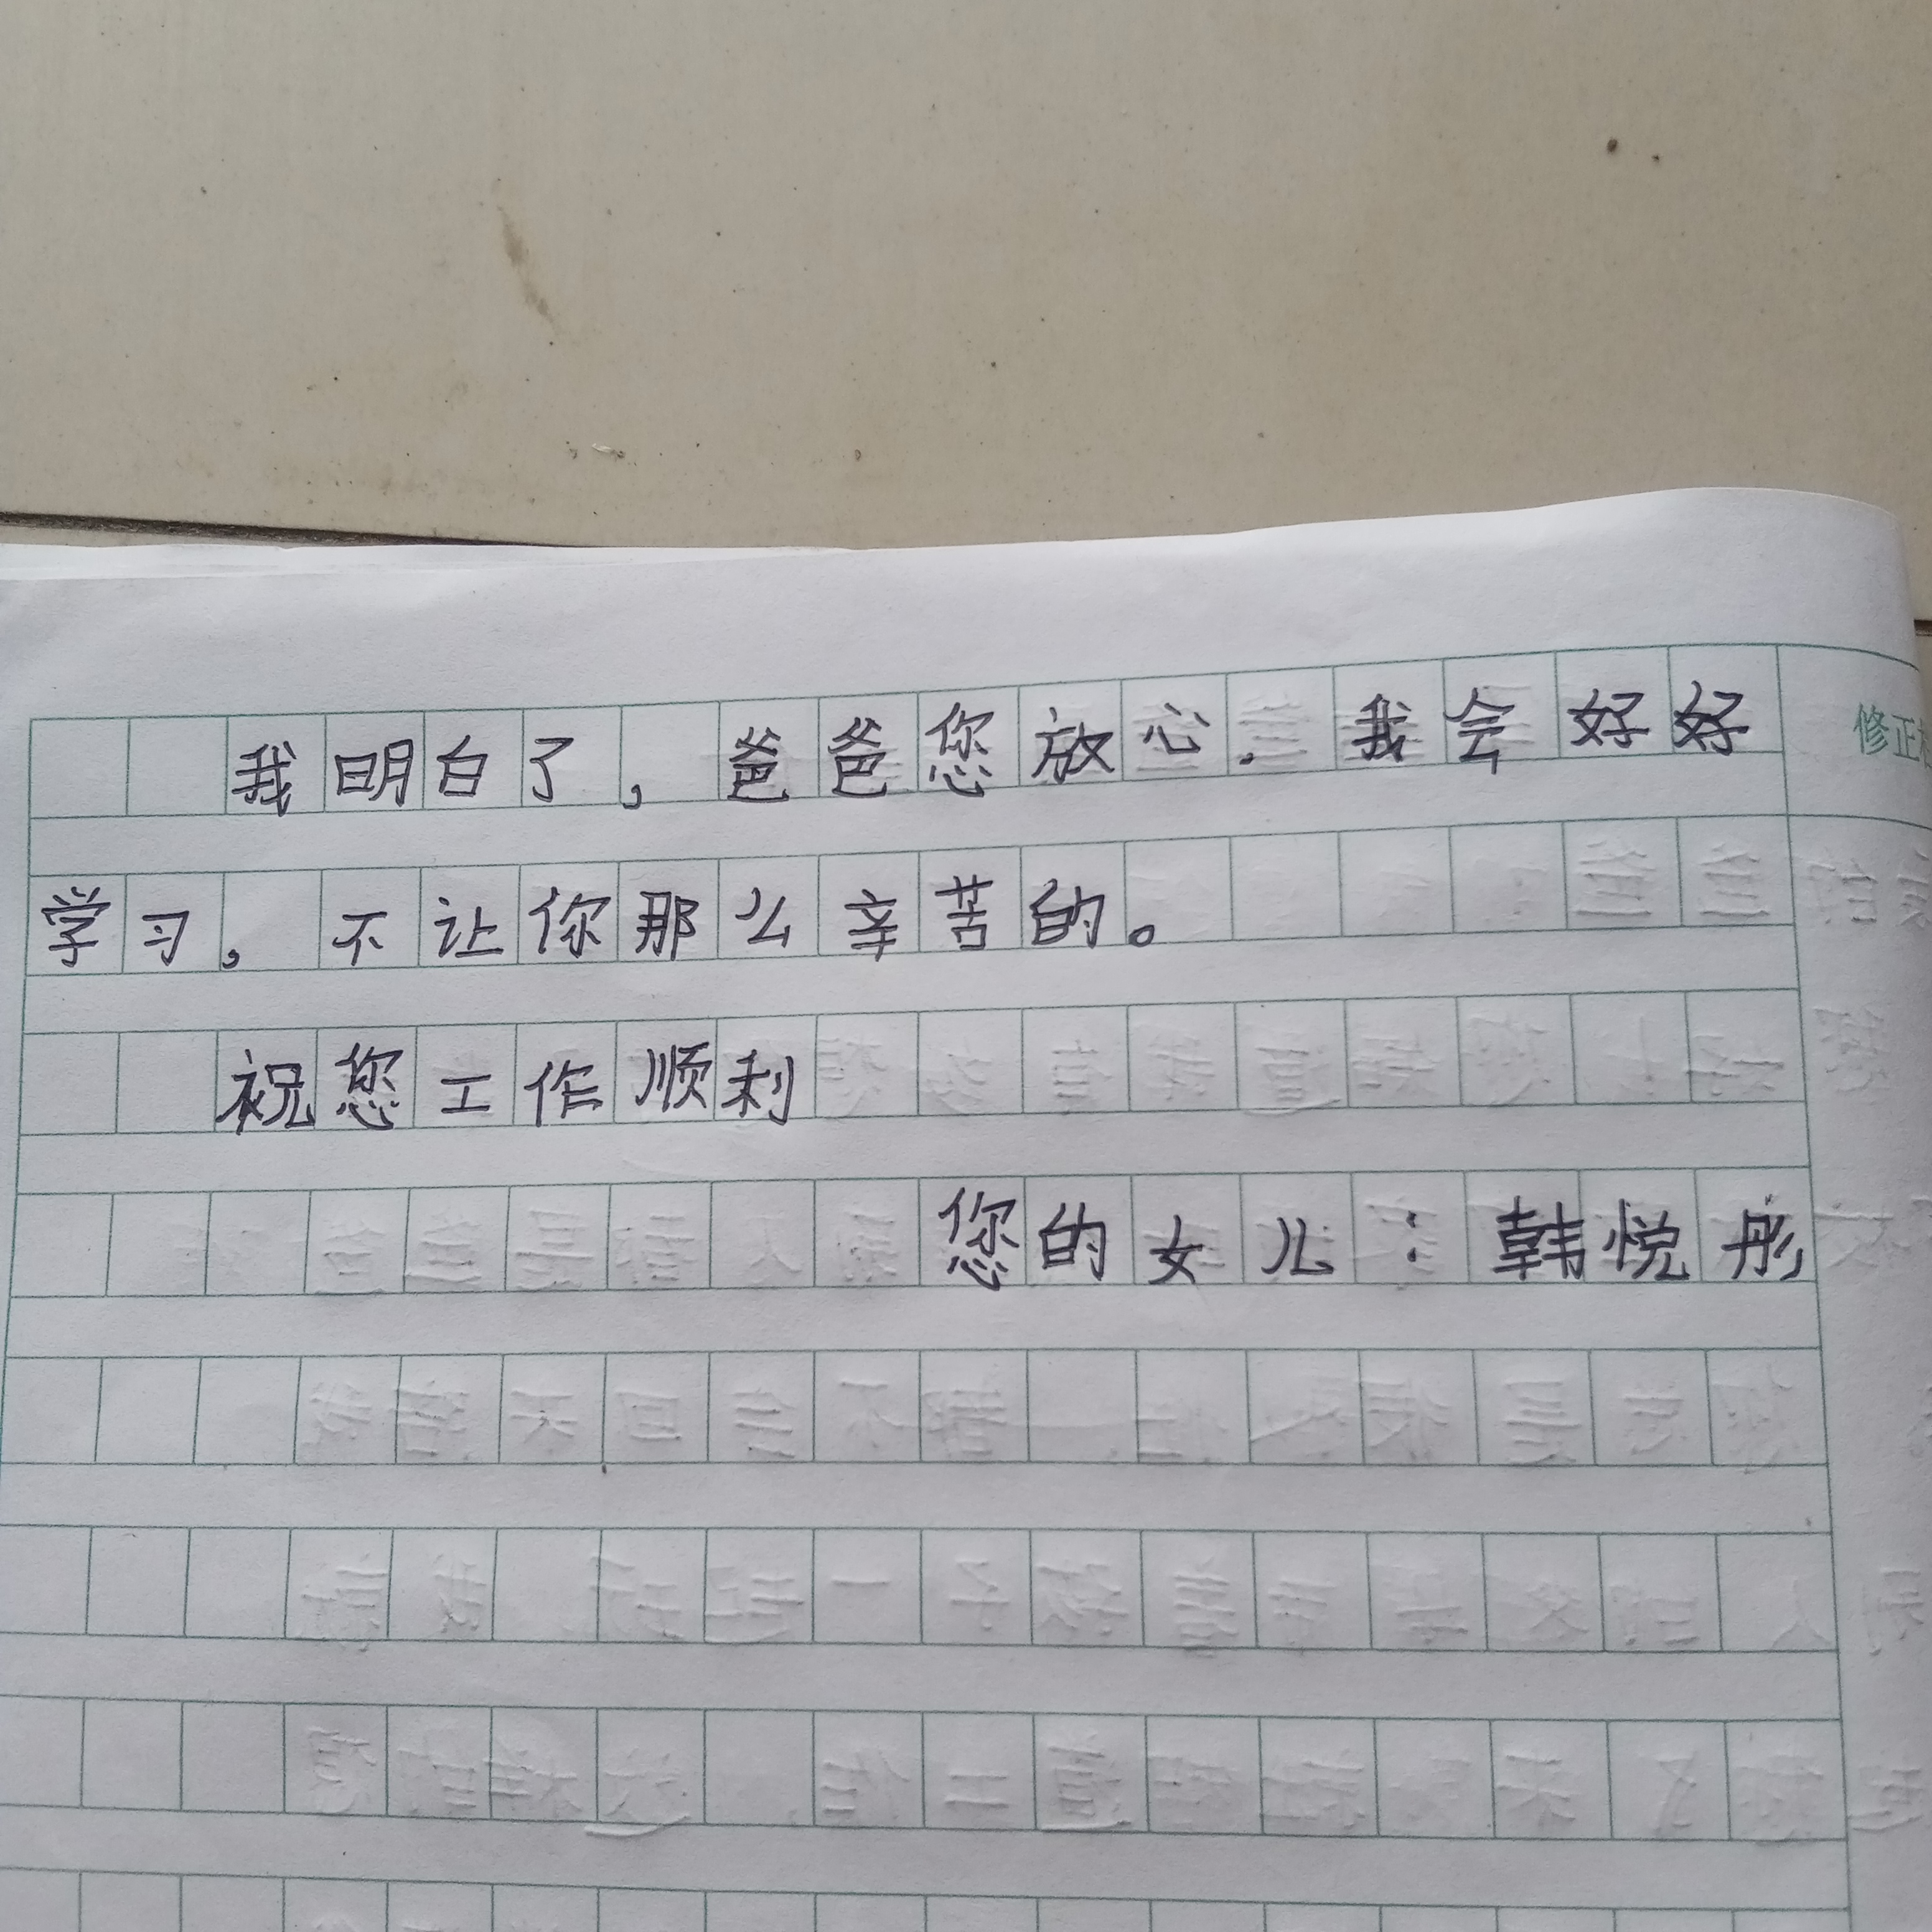 我明白了，爸爸您放心.我会好好
学习，不让你那么辛苦的。
祝您工作顺利
您的女儿：韩悦彤
修正